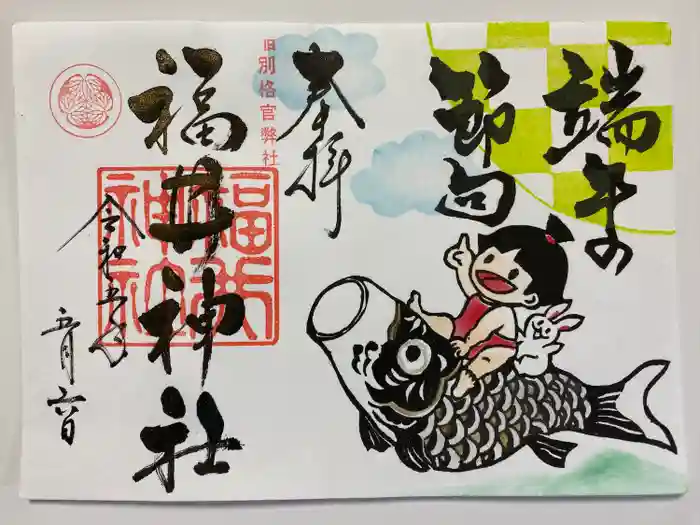 端午の
節句
奉拝
旧別格官弊社
福井神社
福井
神社
令和五年
五月六日